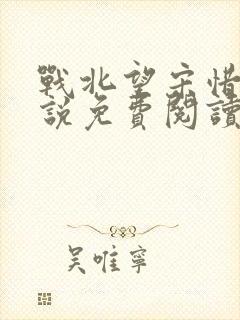 戰北望宋惜
說免費閱讀
吳唯寧